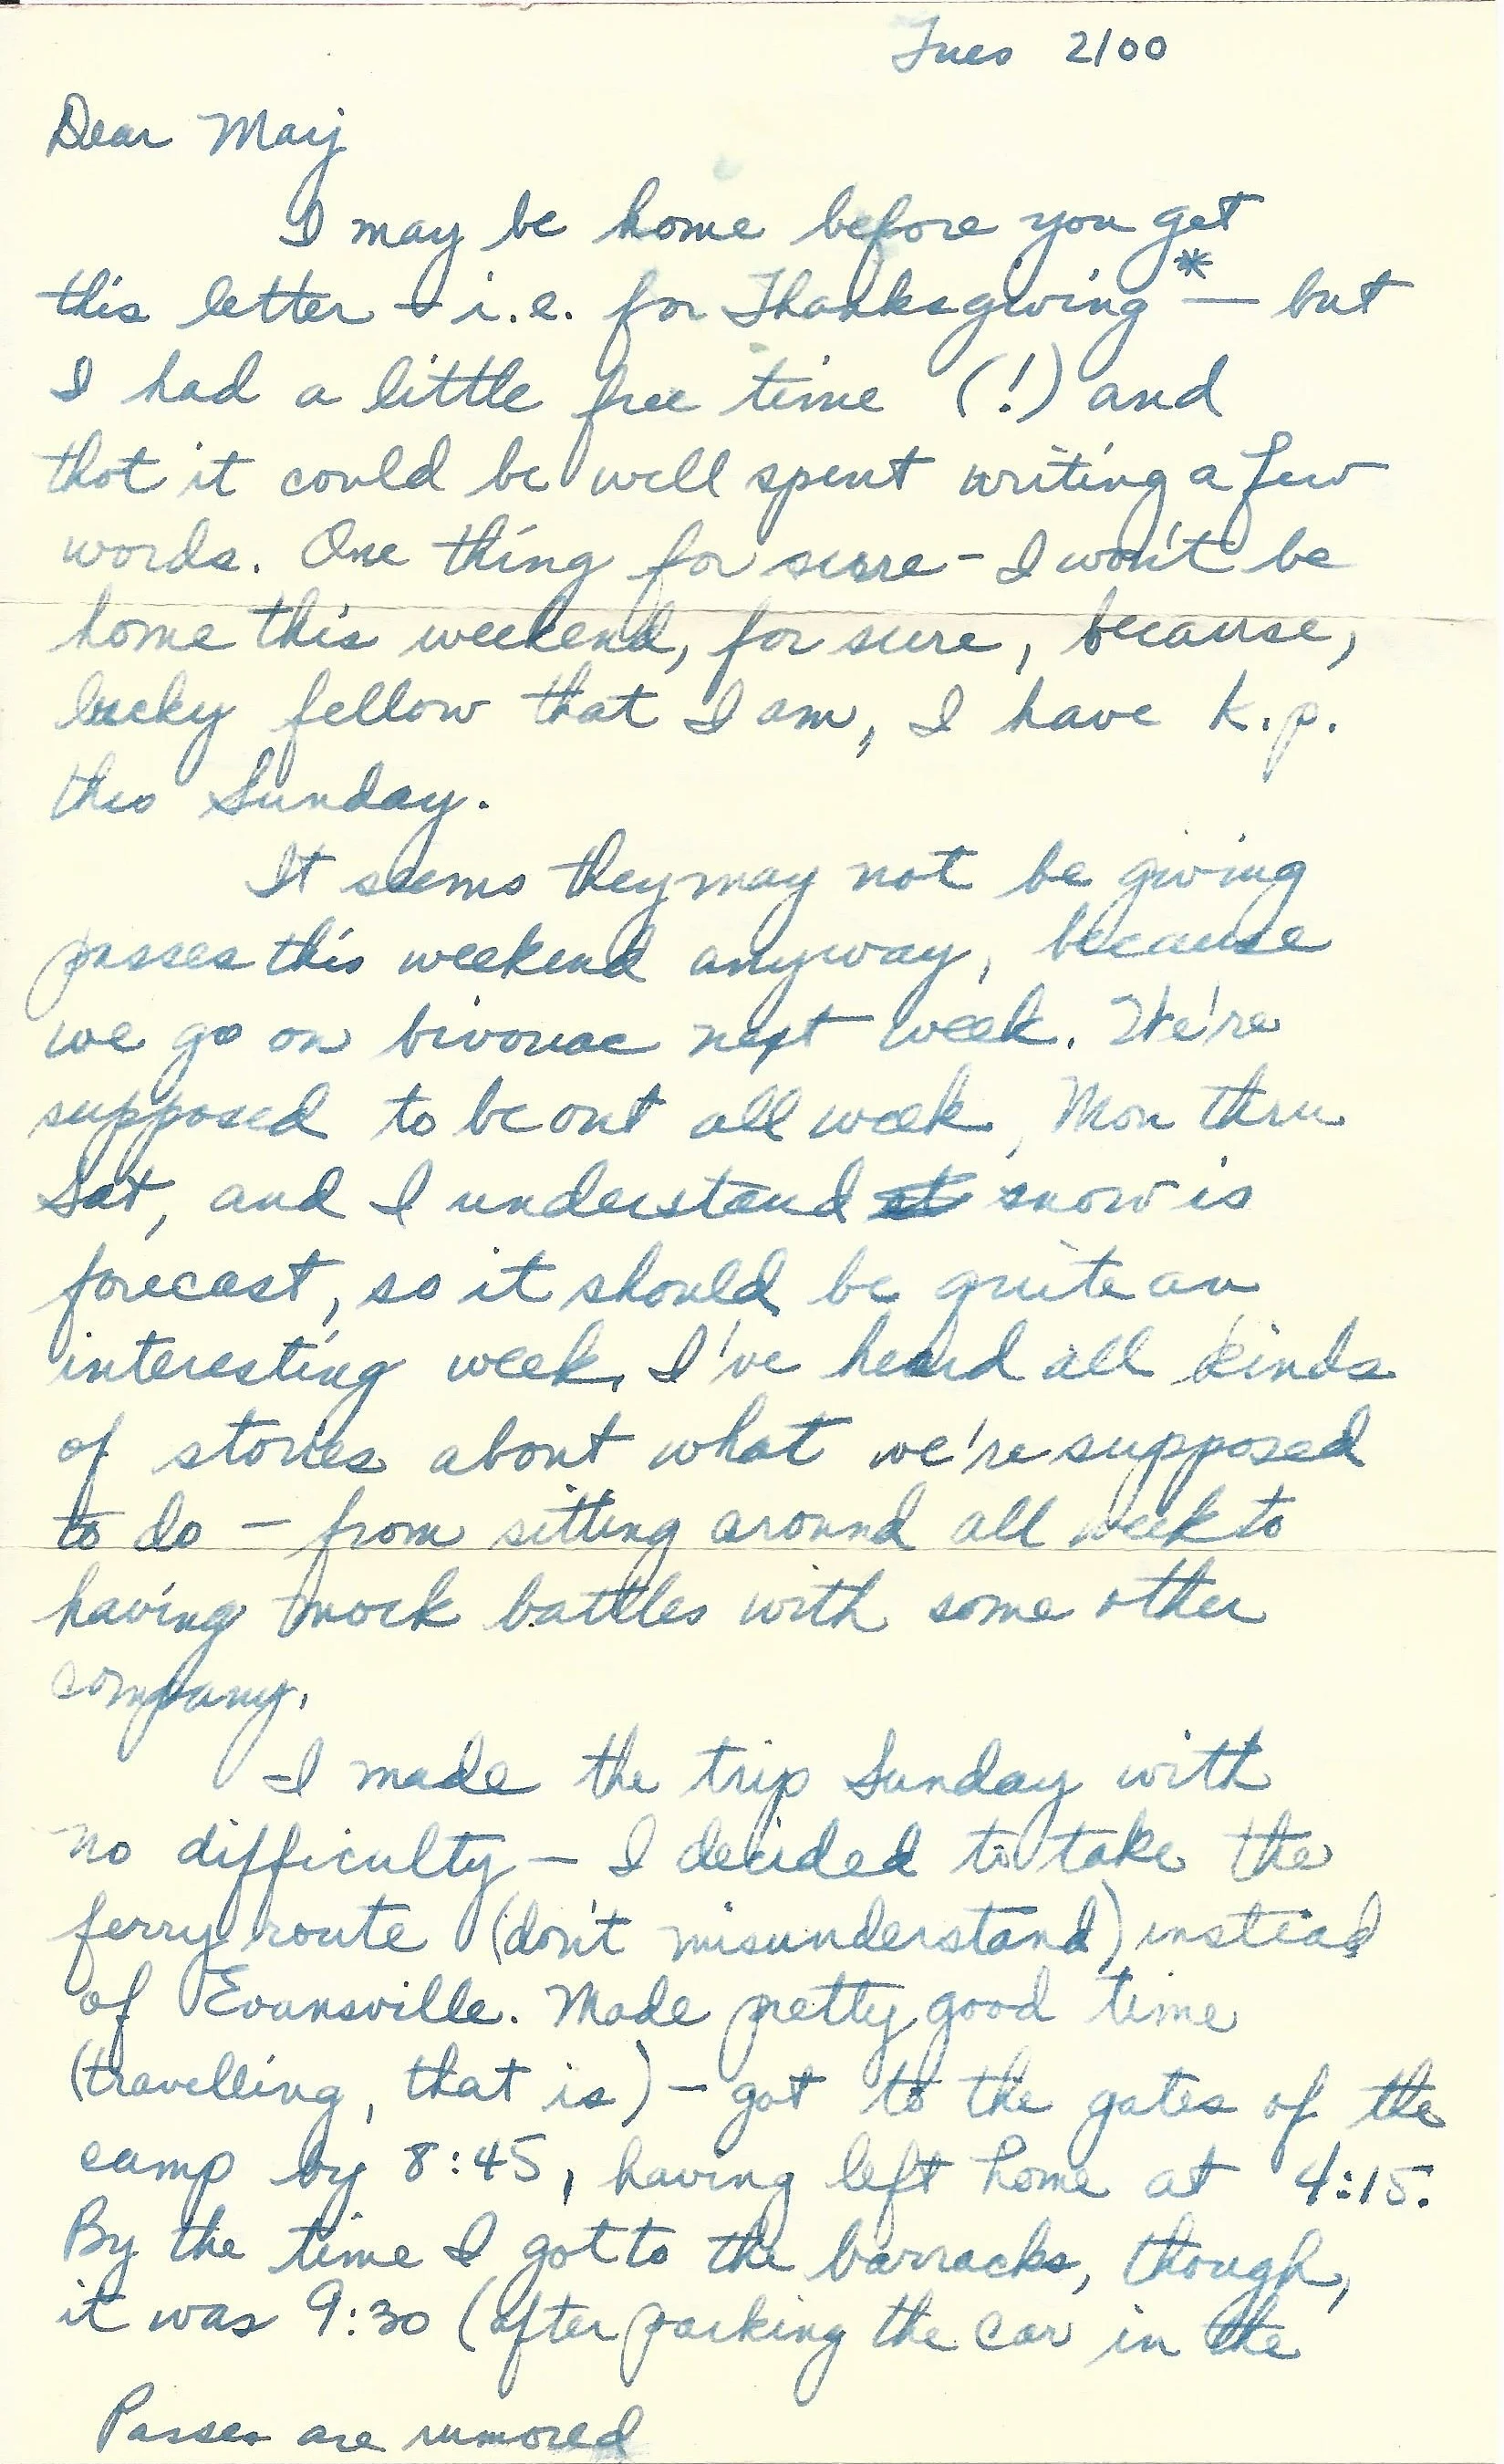 Tues 2100
Dear Marj
I may be home before you get
this letter - i.e. for Thanksgiving* — but
I had a little free time (!) and
thot it could be well spent writing a few
words. One thing for sure - I won't be
home this weekend, for sure, because,
lucky fellow that I am, I have k.p.
this Sunday.
It seems they may not be giving
passes this weekend anyway, because
we go on bivouac next week. We're
supposed to be out all week, Mon thru
Sat, and I understand snow is
forecast, so it should be quite an
interesting week. I've heard all kinds
of stories about what we're supposed
to do — from sitting around all week to
having mock battles with some other
company.
I made the trip Sunday with
no difficulty — I decided to take the
ferry route (don't misunderstand) instead
of Evansville. Made pretty good time
(travelling, that is) — got to the gates of the
camp by 8:45, having left home at 4:15.
By the time I got to the barracks, though,
it was 9:30 (after parking the car in the
Passes are rumored